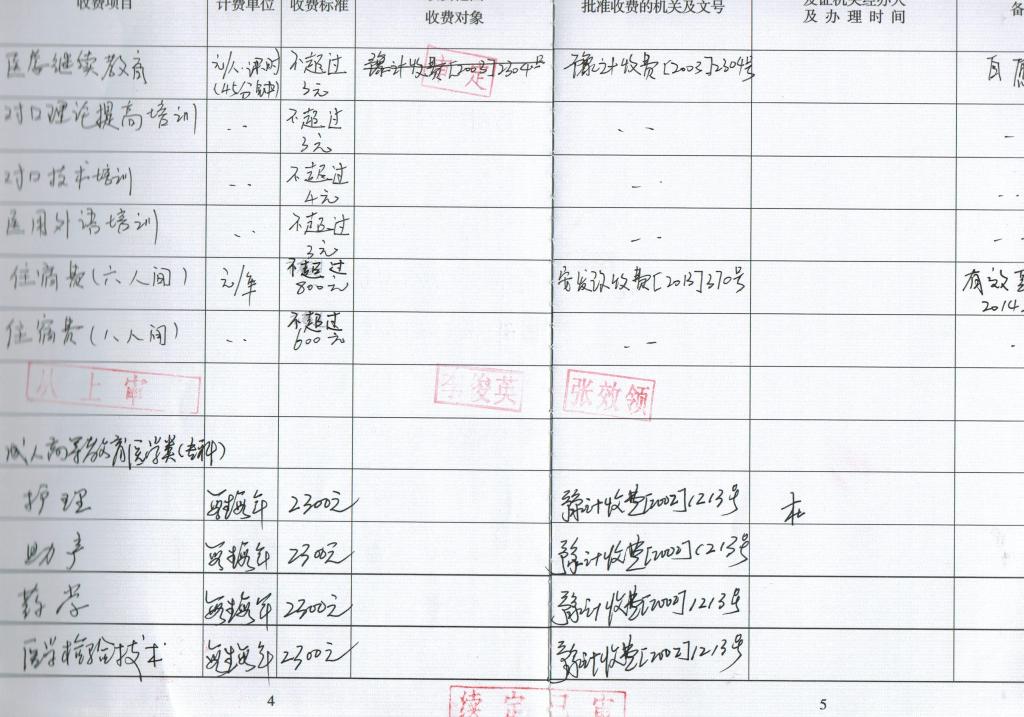 收费项目 计费单位 收费标准 收费对象 批准收费的机关及文号 发证机关经办人及办理时间 备
医学继续教育 元/人·课时(45分钟) 不超过3元 豫计收费[2003]2304号 审定 豫计收费[2003]2304号
对口理论提高培训 〃 不超过3元 〃
对口技术培训 〃 不超过4元 〃
医用外语培训 〃 不超过3元 〃
住宿费(六人间) 元/年 不超过800元 安发改收费[2013]370号 有效至2014.
住宿费(八人间) 〃 不超过600元 〃
从上审 李俊英 张效领
成人高等教育医学类(专科)
护理 每生每年 2300元 豫计收费[2002]1213号
助产 每生每年 2300元 豫计收费[2002]1213号
药学 每生每年 2300元 豫计收费[2002]1213号
医学检验技术 每生每年 2300元 豫计收费[2002]1213号
4 续定已审 5